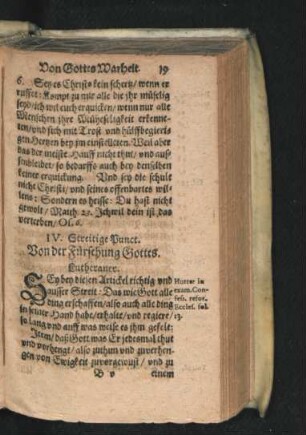 Von Gottes Warheit. 19
6. Sey es Christo kein schertz / wenn er
ruffet: Kompt zu mir alle die jhr müselig
seyd / ich wil euch erquicken / wenn nur alle
Menschen jhre Müheseligkeit erkenne-
ten / und sich mit Trost und hülffbegierig-
gen Hertzen bey jm einstelleten. Weil aber
das der meiste Hauff nicht thut / und auß-
senbleibet / so bedarffs auch bey denselben
keiner erquickung. Und sey die schult
nicht Christi / und seines offenbarten wil-
lens: Sondern es heisse: Du hast nicht
gewolt / Matth 23. Ich wil dein ist das
verterben / Os.
IV. Streitige Punct.
Von der Fürsehung Gottes.
Lutheraner.
SEy bey diesen Artickel richtig und
ausser Streit: Das wie Gott alle
ding erschaffen / also auch alle ding
in seiner Hand habe / erhalte / und regiere /
so lang und auff was weise es jhm gefelt:
Item / daß Gott was Er jedesmal thut
und verhengt / also zuthun und zuverhen-
gen von Ewigkeit zuvor gewust / und zu
Hutter in
exam. Con-
fess. refor.
Eccles. fol.
13.
B v einem